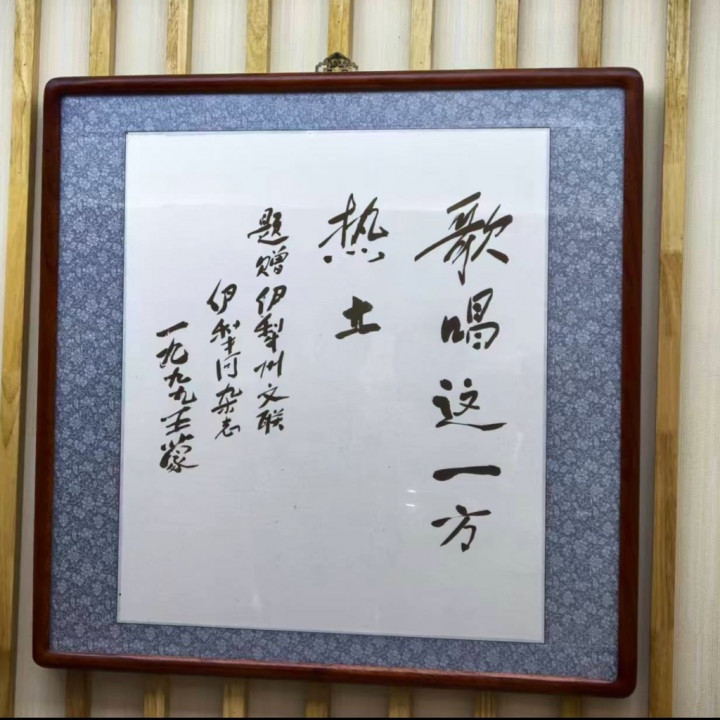 歌唱这一方
热土
题赠伊犁州文联
伊犁河杂志
一九九九王蒙